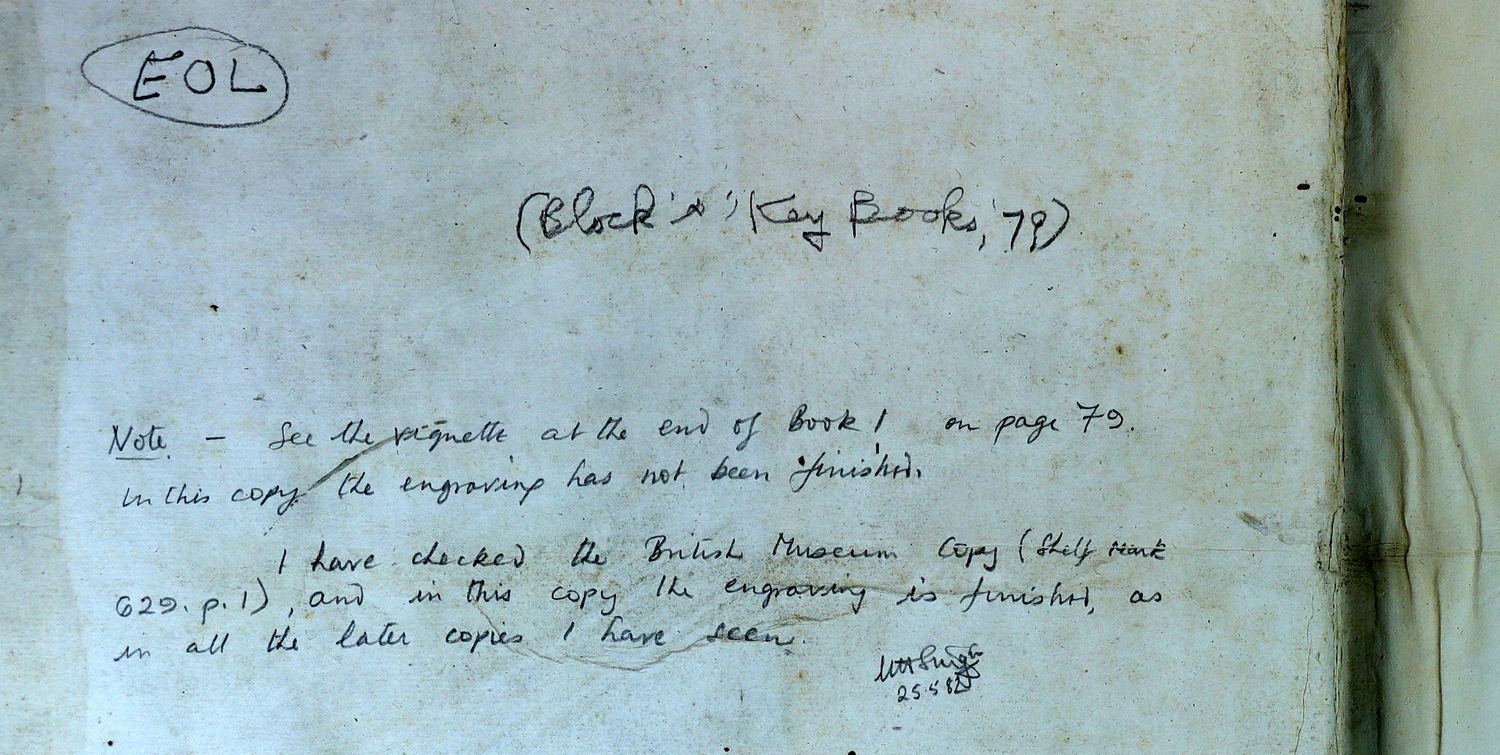 EOL
(Block 'a' Key Books, '79)
Note. - See the vignette at the end of Book I on page 79.
In this copy the engraving has not been finished.
I have checked the British Museum Copy (Shelf Mark
629. p. 1), and in this copy the engraving is finished, as
in all the later copies I have seen.
25.5.82